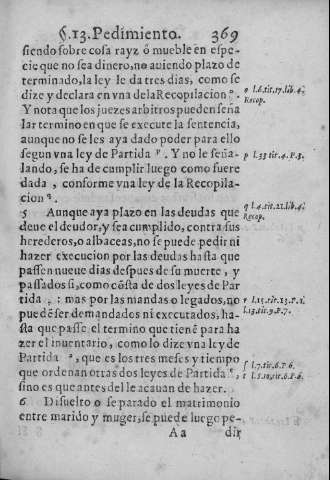 §.13. Pedimiento. 369
siendo sobre cosa rayz ò mueble en espe-
cie que no sea dinero, no auiendo plazo de
terminado, la ley le da tres dias, como se
dize y declara en vna dela Recopilacion º.
Y nota que los juezes arbitros pueden seña
lar termino en que se execute la sentencia,
aunque no se les aya dado poder para ello
segun vna ley de Partida ᵖ. Y no le seña-
lando, se ha de cumplir luego como fuere
dada, conforme vna ley de la Recopila-
cion ᑫ.
5 Aunque aya plazo en las deudas que
deue el deudor, y sea cumplido, contra sus
herederos, o albaceas, no se puede pedir ni
hazer execucion por las deudas hasta que
passen nueue dias despues de su muerte, y
passados si, como cõsta de dos leyes de Par
tida ʳ: mas por las mandas o legados, no
puedẽ ser demandados ni executados, ha-
sta que passe el termino que tienẽ para ha
zer el inuentario, como lo dize vna ley de
Partida ˢ, que es los tres meses y tiempo
que ordenan otras dos leyes de Partida ᵗ,
sino es que antes del le acauan de hazer.
6 Disuelto o separado el matrimonio
entre marido y muger, se puede luego pe-
Aa dir
o l.6.tit.17.lib.4.
Recop.
p l.33 tit.4.P.3.
q l.4.tit.21.lib.4.
Recop.
r l.15.tit.13.P.1.
l.13.tit.9.P.7.
ſ l.7.tit.6.P.6.
t l.5.10.tit.6.P.6.